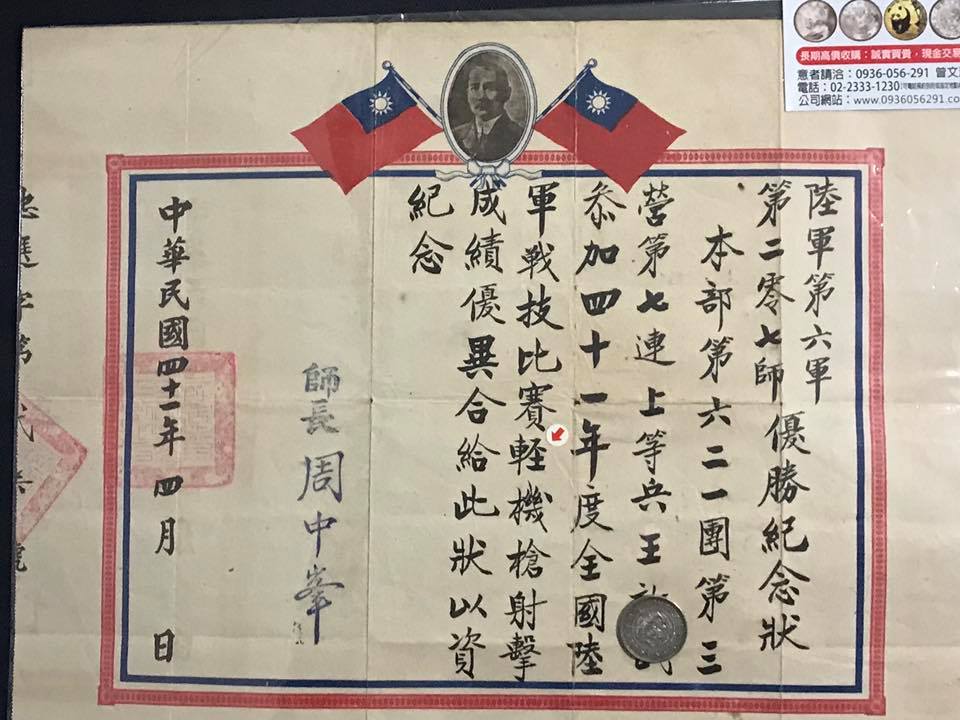 陸軍第六軍
第二零七師 優勝紀念狀
本部第六二一團第三
營第七連上等兵王
叅加四十一年度全國陸
軍戰技比賽軽機槍射擊
成績優異合給此狀以資
紀念
師長 周中峯
中華民國四十一年 四月 日
字第 號
長期高價收購：誠實買賣，現金交易
意者請洽：0936-056-291 曾文
電話：02-2333-1230
公司網站：www.0936056291.co